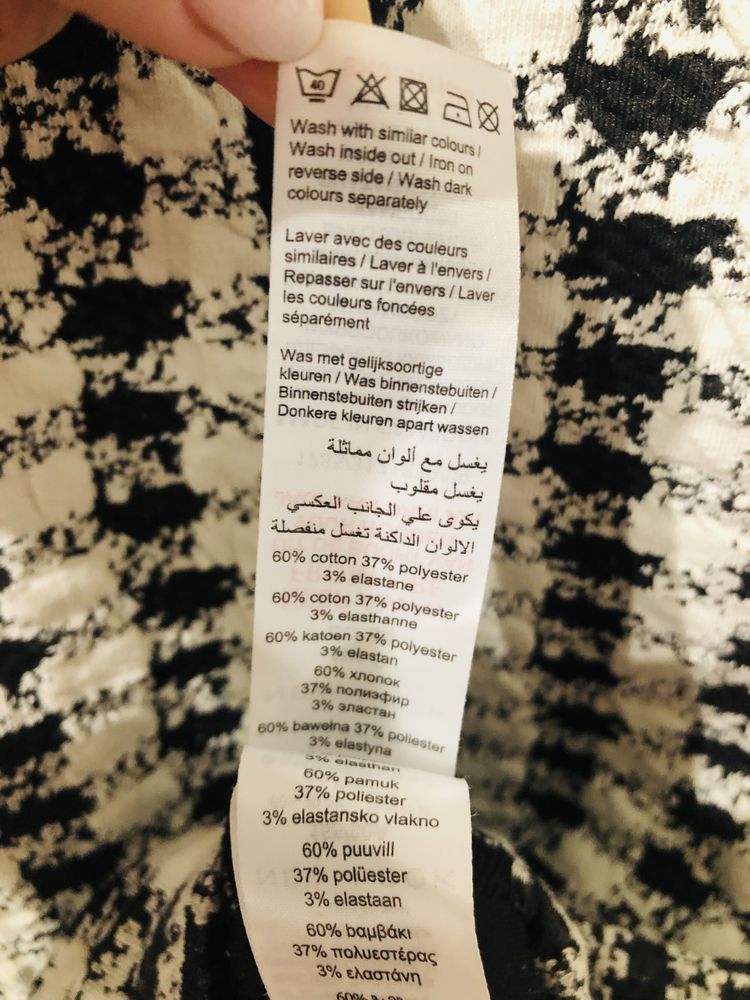 40
Wash with similar colours /
Wash inside out / Iron on
reverse side / Wash dark
colours separately
Laver avec des couleurs
similaires / Laver à l'envers /
Repasser sur l'envers / Laver
les couleurs foncées
séparément
Was met gelijksoortige
kleuren / Was binnenstebuiten /
Binnenstebuiten strijken /
Donkere kleuren apart wassen
يغسل مع ألوان مماثلة
يغسل مقلوب
يكوى علي الجانب العكسي
الالوان الداكنة تغسل منفصلة
60% cotton 37% polyester
3% elastane
60% coton 37% polyester
3% elasthanne
60% katoen 37% polyester
3% elastan
60% хлопок
37% полиэфир
3% эластан
60% bawełna 37% poliester
3% elastyna
3% elasthan
60% pamuk
37% poliester
3% elastansko vlakno
60% puuvill
37% polüester
3% elastaan
60% βαμβάκι
37% πολυεστέρας
3% ελαστάνη
60%